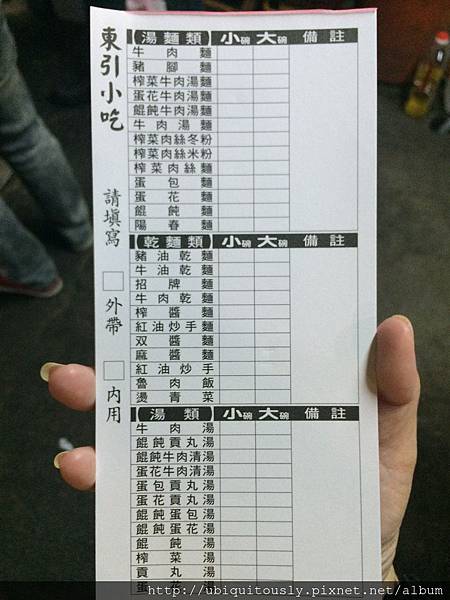 東引小吃
請填寫
外帶
內用
湯麵類 小碗 大碗 備註
牛肉麵
豬腳麵
榨菜牛肉湯麵
蛋花牛肉湯麵
餛飩牛肉湯麵
牛肉湯麵
榨菜肉絲冬粉
榨菜肉絲米粉
榨菜肉絲麵
蛋包麵
蛋花麵
餛飩麵
陽春麵
乾麵類 小碗 大碗 備註
豬油乾麵
牛油乾麵
招牌麵
牛肉乾麵
榨醬麵
紅油炒手麵
双醬麵
麻醬麵
紅油炒手
魯肉飯
燙青菜
湯類 小碗 大碗 備註
牛肉湯
餛飩貢丸湯
餛飩牛肉清湯
蛋花牛肉清湯
蛋包貢丸湯
蛋花貢丸湯
餛飩蛋包湯
餛飩蛋花湯
餛飩湯
榨菜湯
貢丸湯
蛋花湯
http://ubiquitously.pixnet.net/album